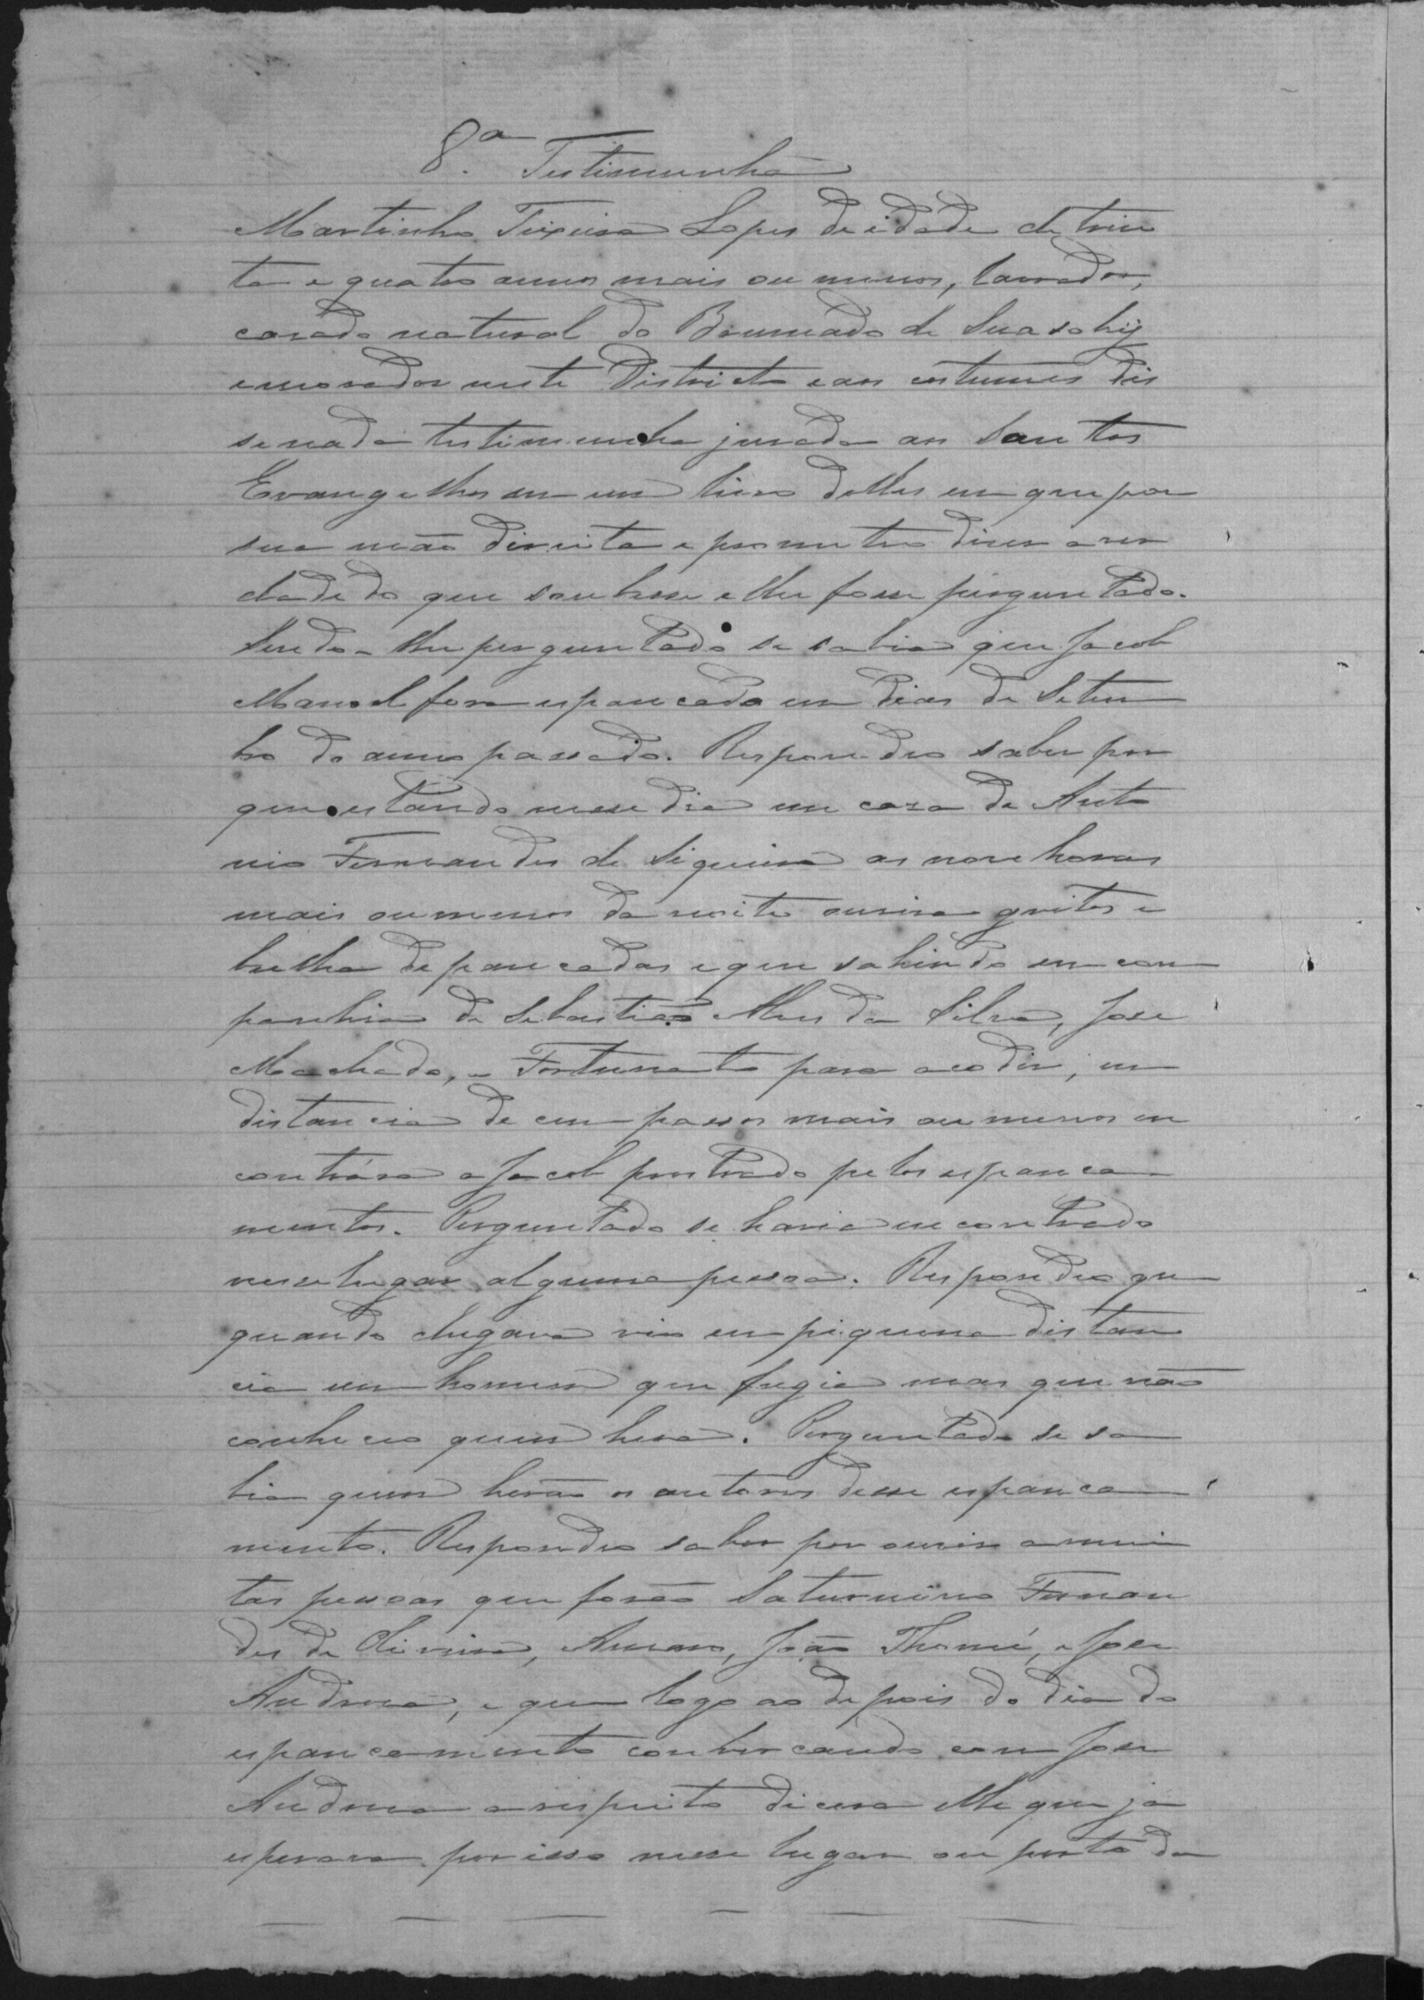 8.ª Testimunha
Martinho Teixeira Lopes de idade de trin
ta e quatro annos mais ou menos, lavrador,
casado natural do Brumado de Suasohy
e morador neste Districto e aos costumes dis
se nada testimunha jurada aos Santos
Evangelhos em um livro delles em que por
sua mão direita e prometteo diser a ver
dade do que soubesse e lhe fosse perguntado.
Sendo-lhe perguntado se sabia que Jacob
Manoel fora espancado em dias de Setem
bro do anno passado. Respondeo saber por
que estando nesse dia em casa de Anto
nio Fernandes de Siqueira as nove horas
mais ou menos da noite ouvira gritos e
bulha de pancadas e que sahindo em com
panhia de Sebastião Alves da Silva, Jose
Machado, e Fortunato para acodir, em
distancia de cem passos mais ou menos en
contrára a Jacob prostrado pelos espanca
mentos. Perguntado se havia encontrado
nesse lugar alguma pessoa. Respondeo que
quando chegara vio em piquena distan
cia um homem que fugia mas que não
conheceo quem hera. Perguntado se sa
bia quem herão os autores desse espanca
mento. Respondeo saber por ouvir a mui
tas pessoas que forão Saturnino Fernan
des de Oliveira, Amaro, João Thomé, e Jose
Andrea, e que logo ao depois do dia do
espancamento conversando com Jose
Andrea a respeito dicera lhe que ja
esperava por isso nesse lugar ou porta da